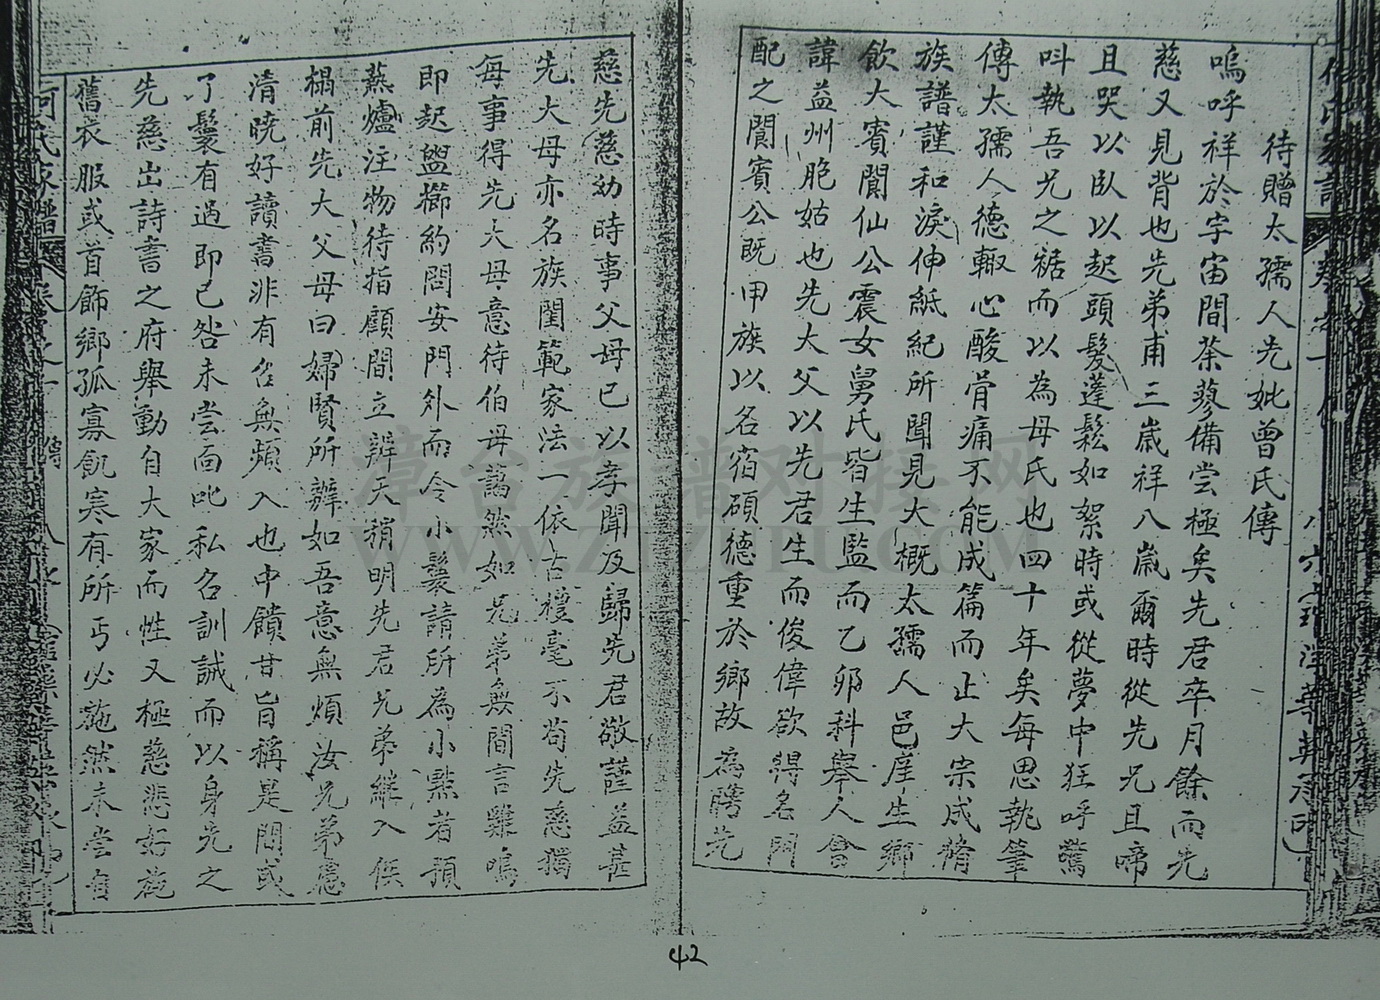 待贈太孺人先妣曾氏傳
嗚呼祥於宇宙間荼蓼備尝極矣先君卒月餘而先
慈又見背也先弟甫三歲祥八歲爾時從先兄且啼
且哭以臥以起頭髮蓬鬆如絮時或從夢中狂呼驚
呌執吾兄之裾而以為母氏也四十年矣每思執筆
傳太孺人德輙心酸骨痛不能成篇而止大宗成脩
族譜謹和淚伸紙紀所聞見大概太孺人邑庠生鄉
飲大賓閬仙公震女舅氏皆生監而乙夘科舉人會
諱益州胞姑也先大父以先君生而俊偉欲得名門
配之閬賓公既甲族以名宿碩德重於鄉故為聘先
慈先慈幼時事父母已以孝聞及歸先君敬謹益甚
先大母亦名族閨範家法一依古禮毫不苟先慈獨
每事得先大母意待伯母藹然如兄弟無間言雞鳴
即起盥櫛約問安門外而令小鬟請所為小㸃若預
蓺爐注物待指顧間立辨天稍明先君兄弟継入候
榻前先大父母曰婦賢所辦如吾意無煩汝兄弟應
清晓好讀書非有召無頻入也中饋甘旨稱是間或
了鬟有過即已咎未尝面叱私召訓誡而以身先之
先慈出詩書之府舉動自大家而性又極慈悲好施
舊衣服或首飾鄉孤寡飢寒有所丐必施然未尝自
42
漳台族谱对接网
www.zizupu.com